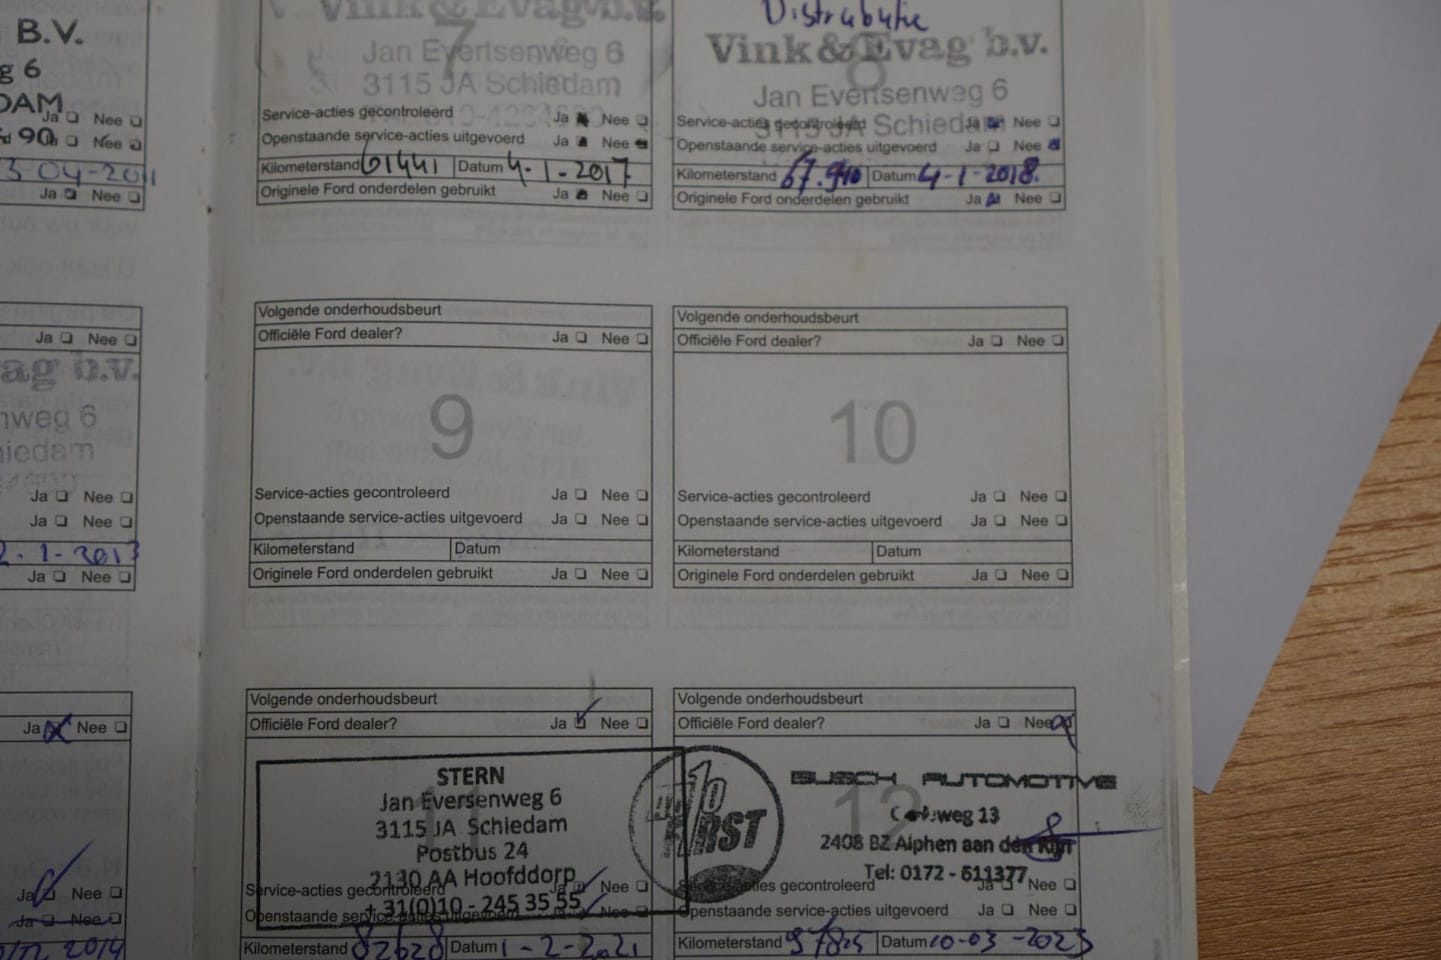 B.V.
g 6
DAM
Ja Nee
90 Nee
3-04-2011
Ja Nee
Vink & Evag b.v.
7
Jan Evertsenweg 6
3115 JA Schiedam
Service-acties gecontroleerd Ja Nee
Openstaande service-acties uitgevoerd Ja Nee
Kilometerstand 61441 Datum 4-1-2017
Originele Ford onderdelen gebruikt Ja Nee
Distributie
Vink & Evag b.v.
8
Jan Evertsenweg 6
3115 JA Schiedam
Service-acties gecontroleerd Ja Nee
Openstaande service-acties uitgevoerd Ja Nee
Kilometerstand Datum 4-1-2018.
Originele Ford onderdelen gebruikt Ja Nee
Ja Nee
ag b.v.
nweg 6
iedam
Ja Nee
Ja Nee
2-1-2013
Ja Nee
Volgende onderhoudsbeurt
Officiële Ford dealer? Ja Nee
9
Service-acties gecontroleerd Ja Nee
Openstaande service-acties uitgevoerd Ja Nee
Kilometerstand Datum
Originele Ford onderdelen gebruikt Ja Nee
Volgende onderhoudsbeurt
Officiële Ford dealer? Ja Nee
10
Service-acties gecontroleerd Ja Nee
Openstaande service-acties uitgevoerd Ja Nee
Kilometerstand Datum
Originele Ford onderdelen gebruikt Ja Nee
Ja Nee
Ja Nee
Ja Nee
2014
Volgende onderhoudsbeurt
Officiële Ford dealer? Ja Nee
11
STERN
Jan Eversenweg 6
3115 JA Schiedam
Postbus 24
2130 AA Hoofddorp
+31(0)10 - 245 35 55
Service-acties gecontroleerd Ja Nee
Openstaande service-acties uitgevoerd Nee
Kilometerstand 82628 Datum 1-2-2021
Volgende onderhoudsbeurt
Officiële Ford dealer? Ja Nee
12
FIRST
BUSCH AUTOMOTIVE
13
2408 BZ Alphen aan den Rijn
Tel: 0172 - 611377
Service-acties gecontroleerd Ja Nee
Openstaande service-acties uitgevoerd Ja Nee
Kilometerstand 97825 Datum 10-03-2023